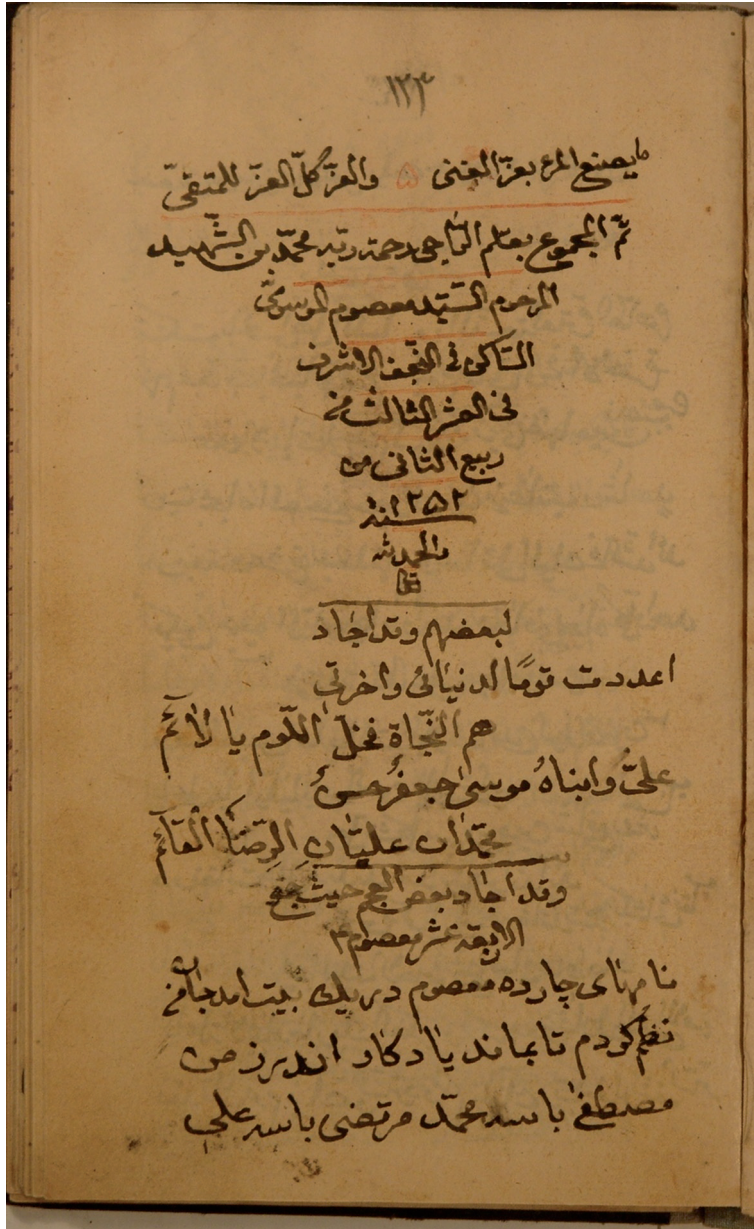 ١٢٣
ما يصنع المرء بعزّ الغنى ۵ والعزّ كلّ العزّ للمتّقىّ
تمّ المجموع بقلم الراجى رحمة ربّه محمّد بن الشّهيد
المرحوم السّيّد معصوم الموسوىّ
السّاكن فى النّجف الاشرف
فى العشر الثّالث من
ربيع الثّانى من
سنة ١٢٥٢
والحمد لله
لبعضهم وقد اجاد
اعددت قومًا لدنيائى واخرتى
هم النّجاة فخلّ اللّوم يا لائم
علىّ وابناهُ موسى جعفرٌ حسنٌ
محمّدان عليّان الرّضا القائم
وقد اجاد بعض العجم حيث جمع
الاربعة عشر معصوم ع
نامهاى چارده معصوم در يك بيت امد
نظم كردم تا بماند يادكار اندر زمن
مصطفى باسه محمّد مرتضى باسه على